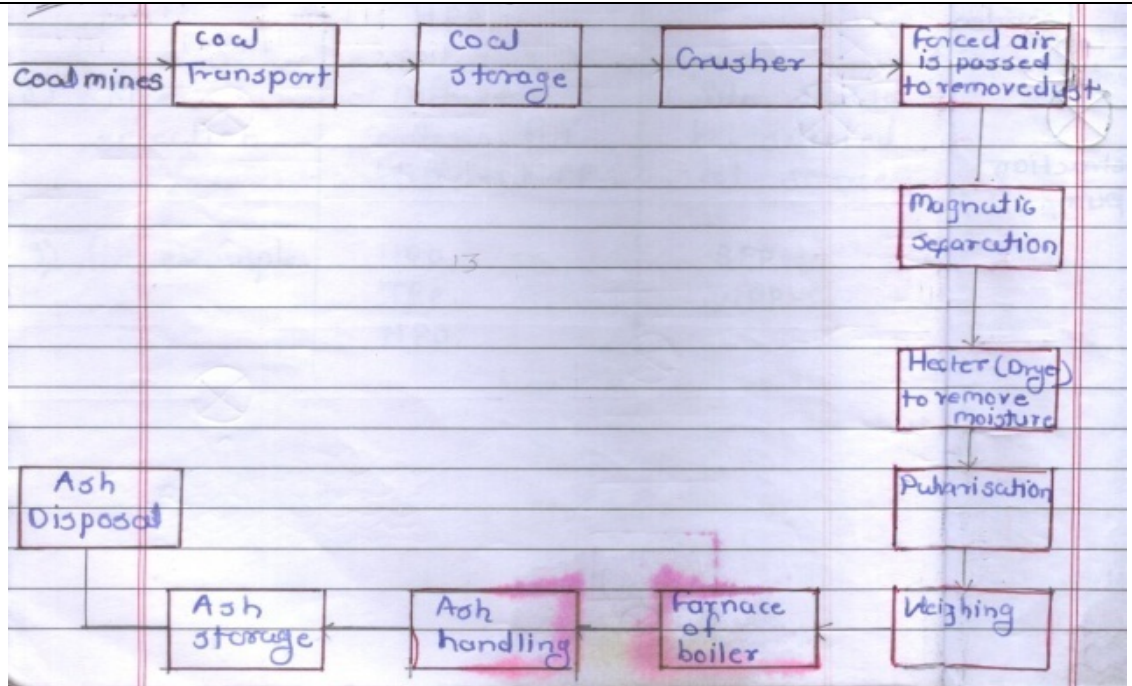 Coal mines
Coal
Transport
Coal
storage
Crusher
Forced air
is passed
to remove dust
Magnatic
separation
Heater (Dryer)
to remove
moisture
Pulvarisation
Weighing
Farnace
of
boiler
Ash
handling
Ash
storage
Ash
Disposal
13